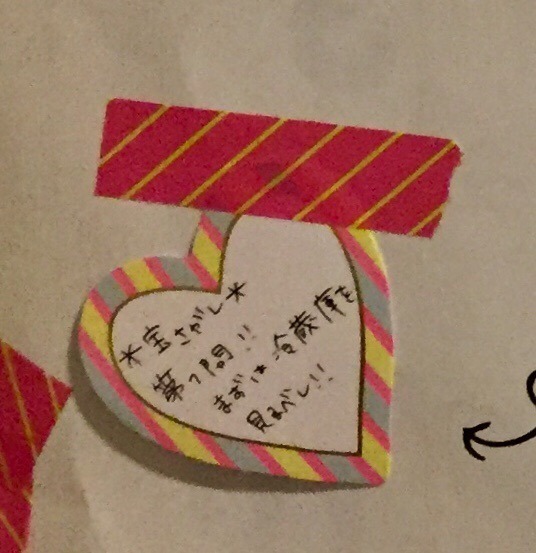 *宝さがし*
第1問!!
まずは冷蔵庫を
見るべし!!